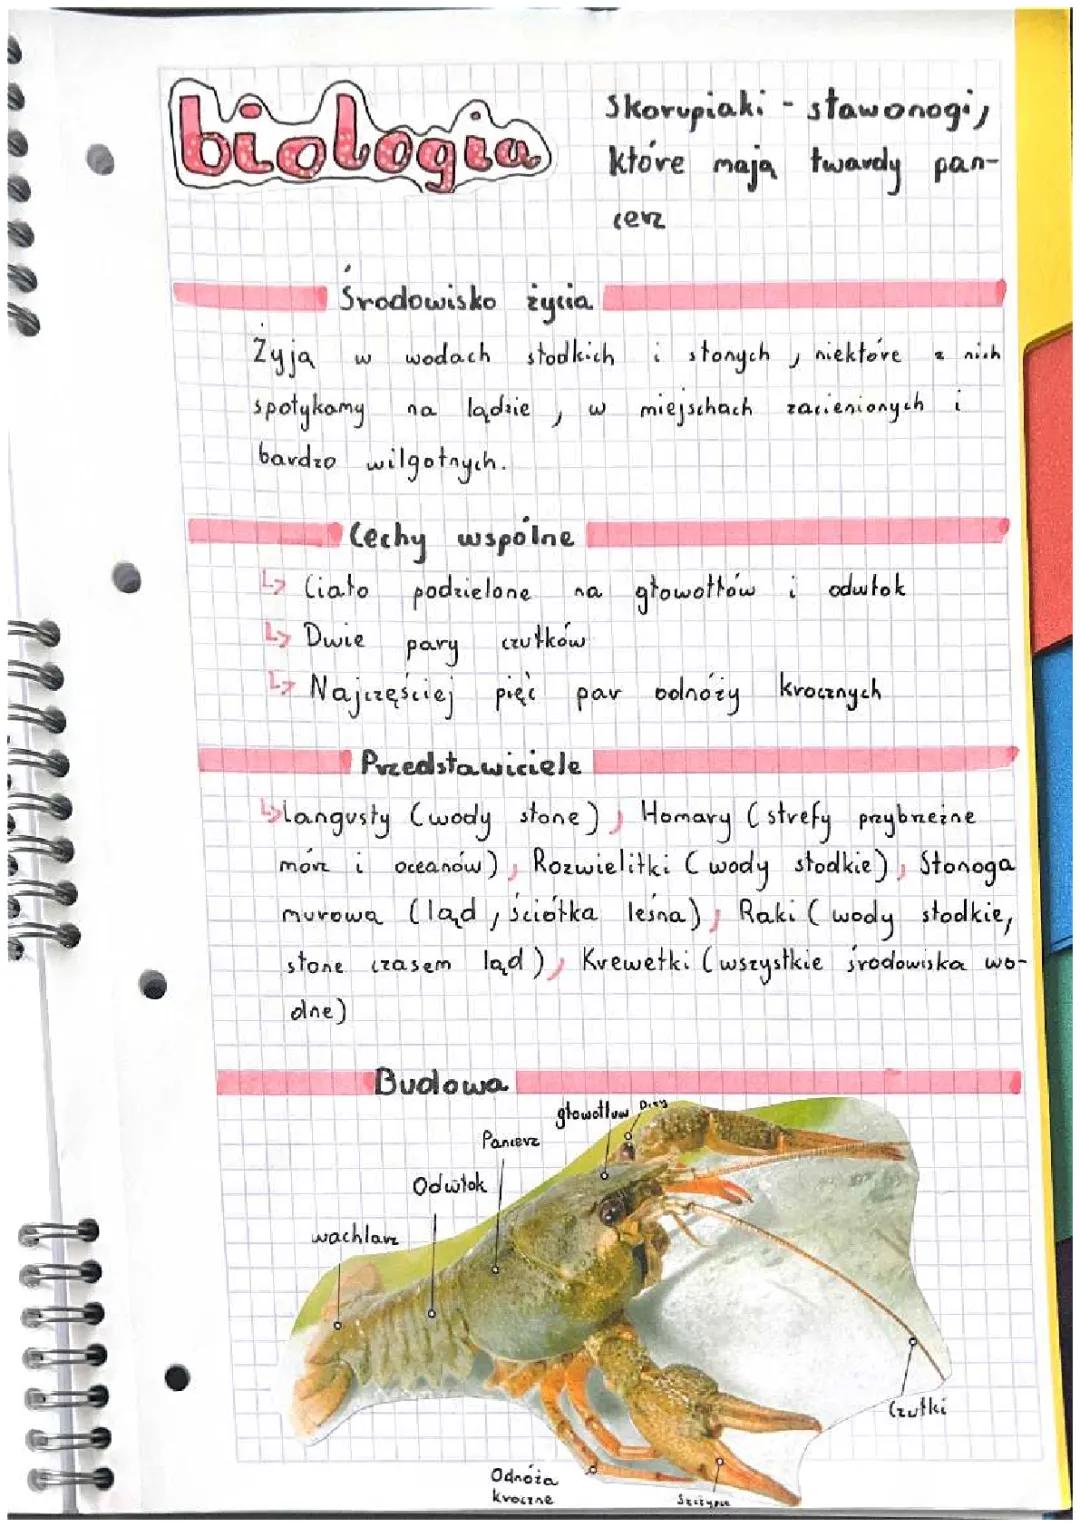 biologia
Skorupiaki - stawonogi,
które mają twardy pan-
cerz
Środowisko życia
Żyją w wodach słodkich i słonych, niektóre z nich
spotykamy na lądzie, w miejschach zacienionych i
bardzo wilgotnych.
Cechy wspólne
↳ Ciało podzielone na głowotłów i odwłok
↳ Dwie pary czułków
↳ Najczęściej pięć par odnóży krocznych
Przedstawiciele
↳ Langusty (wody słone), Homary (strefy przybrzeżne
mórz i oceanów), Rozwielitki (wody słodkie), Stonoga
murowa (ląd, ściółka leśna), Raki (wody słodkie,
słone czasem ląd), Krewetki (wszystkie środowiska wo-
dne)
Budowa
głowotłuw
Pancerz
Odwłok
wachlarz
Czułki
Odnóża
kroczne
Szczypce